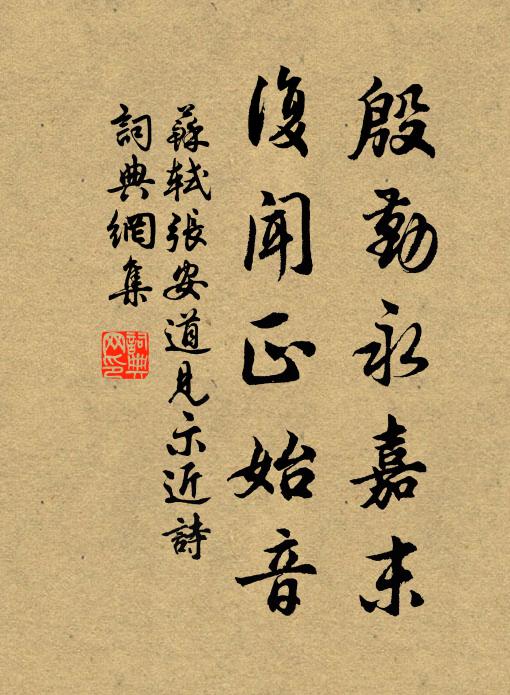 殷勤永嘉末
復聞正始音
蘇軾張安道見示近詩
詞典網集
詞典网印